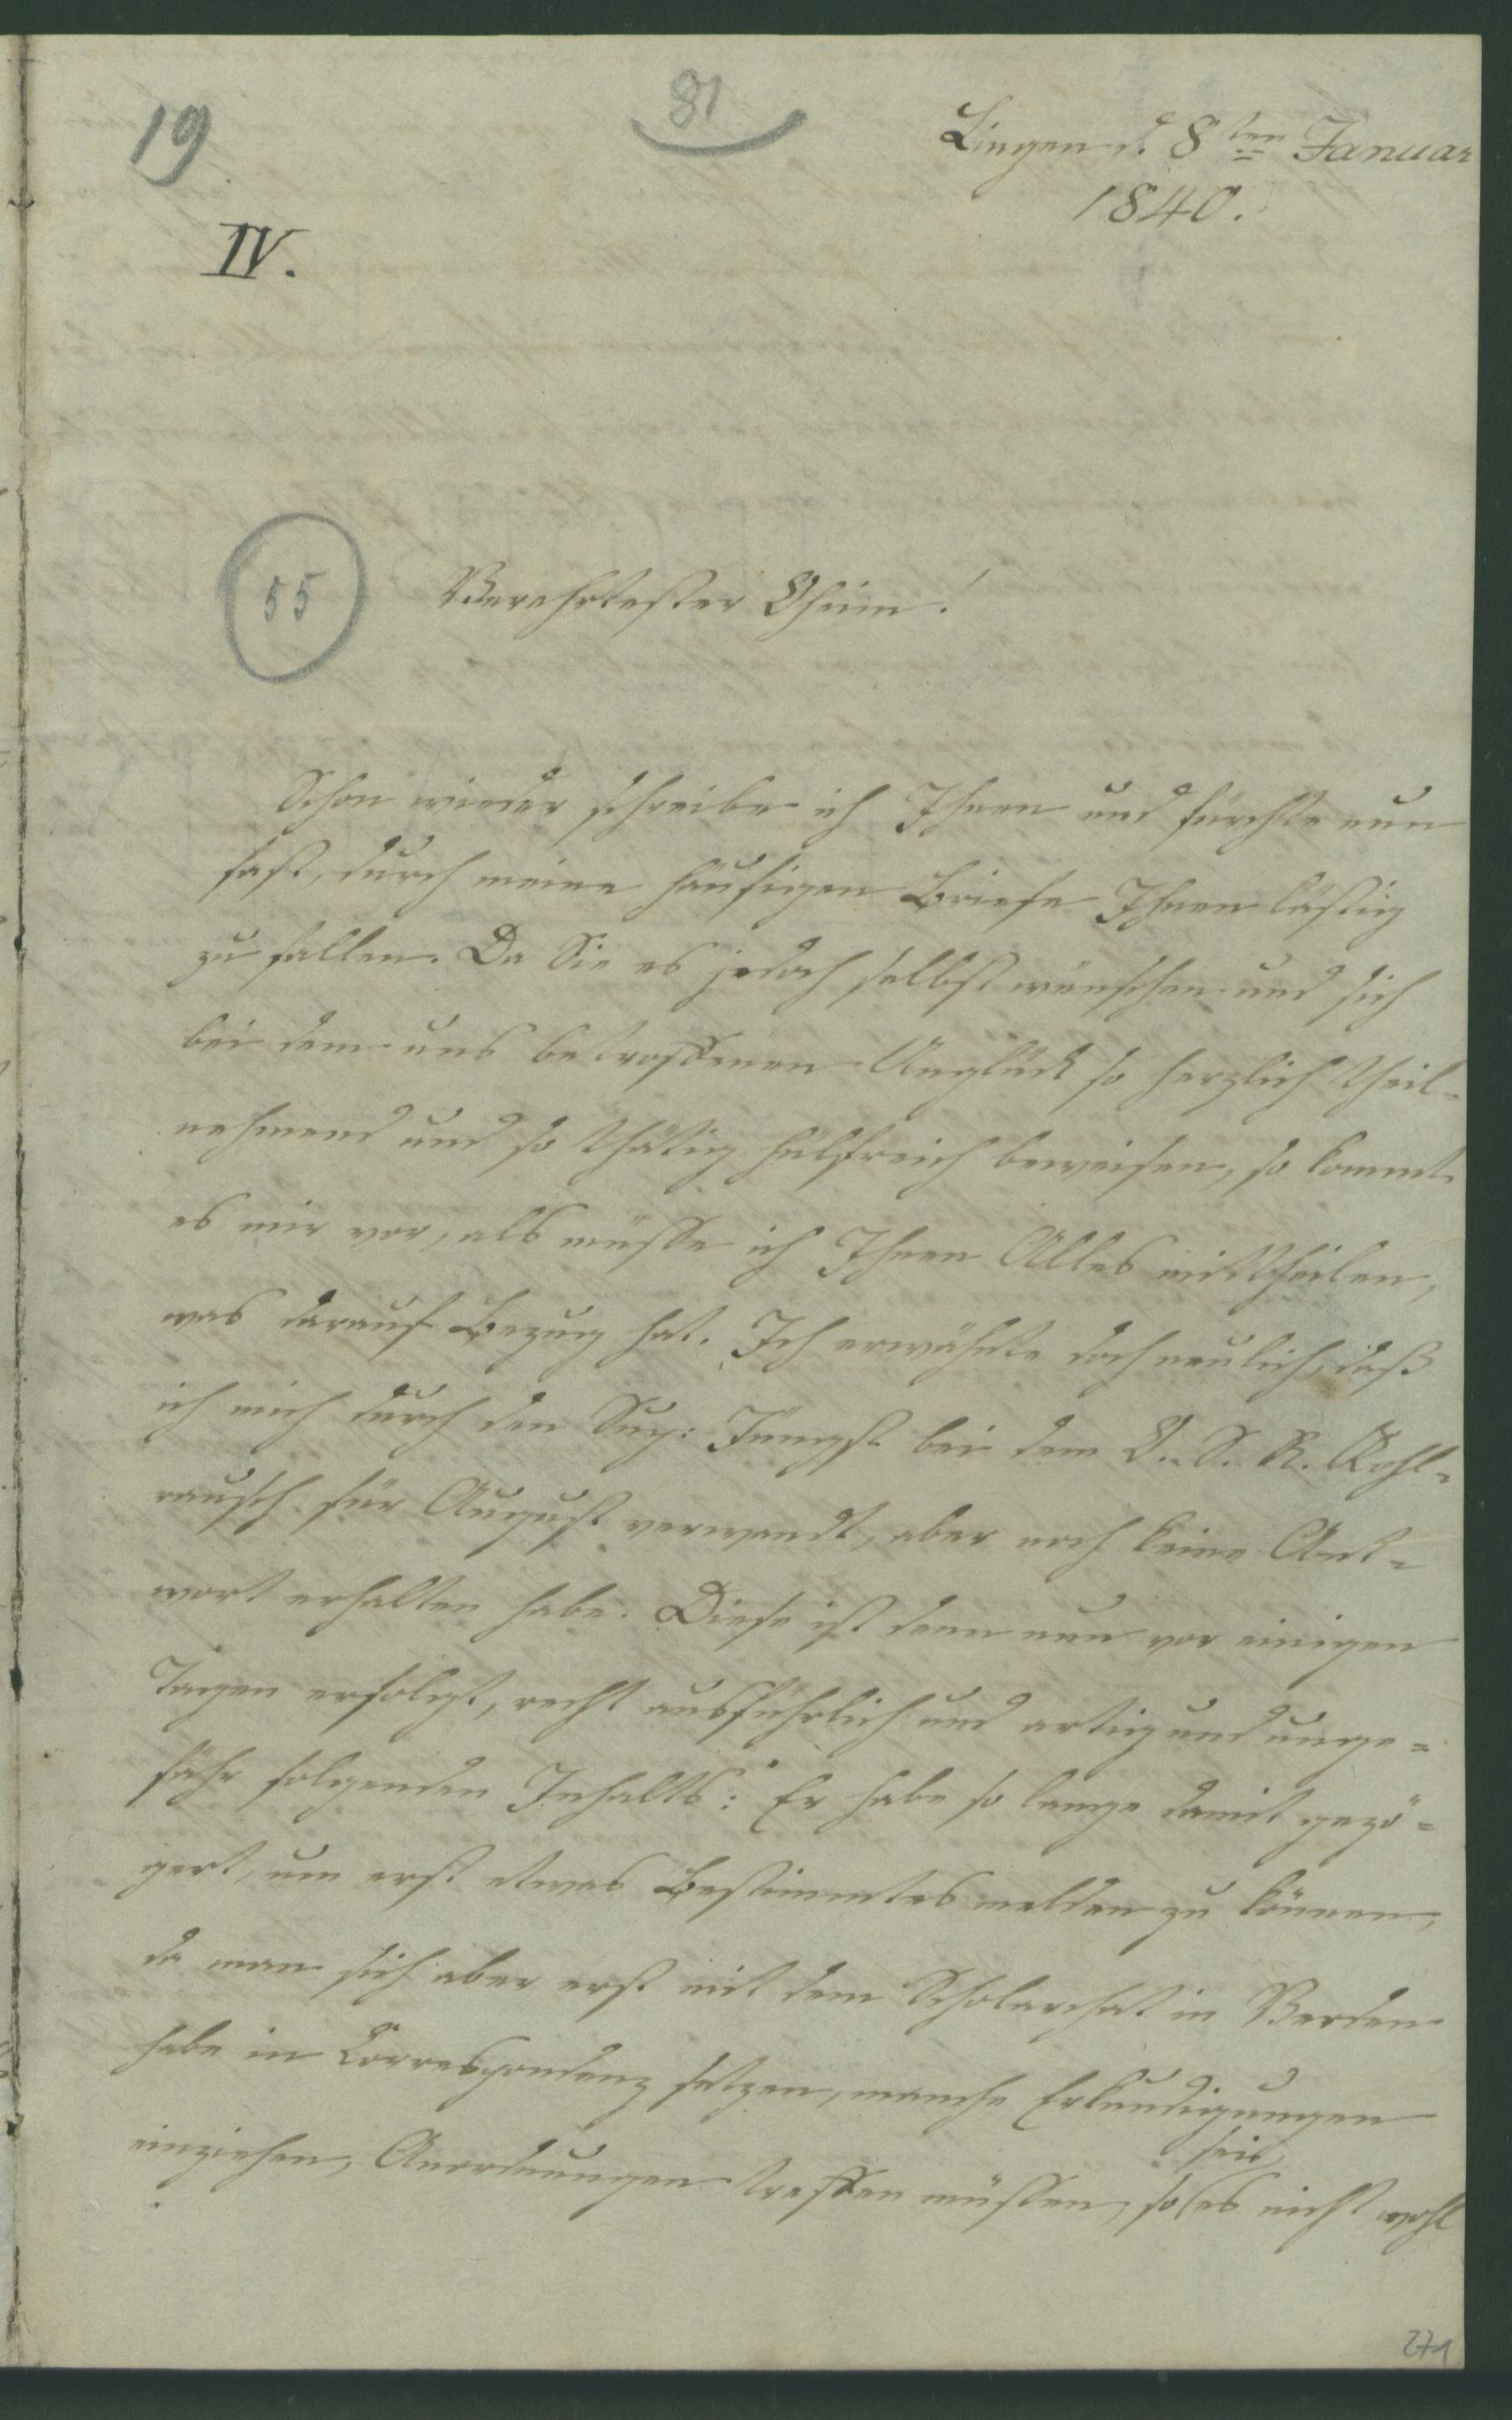 19
81
Lingen d. 8ten Januar
1840.
IV.
55
Verehrtester Oheim!
Schon wieder schreibe ich Ihnen und fürchte nun
fast, durch meine häufigen Briefe Ihnen lästig
zu fallen. Da Sie es jedoch selbst wünschen und sich
bei dem uns betroffenen Unglück so herzlich theil-
nehmend und so thätig hülfreich beweisen, so kommt
es mir vor, als müsse ich Ihnen Alles mittheilen,
was darauf Bezug hat. Ich erwähnte doch neulich, daß
ich mich durch den Sup: Jüngst bei dem O. S. R. Kohl-
rausch für August verwandt, aber noch keine Ant-
wort erhalten habe. Diese ist denn nun vor einigen
Tagen erfolgt, recht ausführlich und artig und unge-
fähr folgenden Inhalts: Er habe so lange damit gezö-
gert, um erst etwas Bestimmtes melden zu können,
da man sich aber erst mit dem Scholarchat in Verden
habe in Correspondenz setzen, manche Erkundigungen
einziehen, Anordnungen treffen müssen, so sei es nicht wohl
271